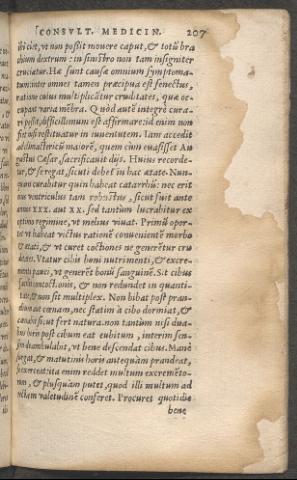 CONSVLT. MEDICIN. 207
vt non possit mouere caput, & totũ bra
chium dextrum: in sinistro non tam insigniter
cruciatur. Hæ sunt causæ omnium symptoma-
tum: inter omnes tamen præcipua est senectus,
ratione cuius multiplicãtur cruditates, quæ oc-
cupant varia mẽbra. Quòd autẽ integrè cura-
ri possit, difficillimum est affirmare: id enim non
fit nisi restituatur in iuuentutem. Iam accedit
ad climactericũ maiorẽ, quem cùm euasisset Au
gustus Cæsar, sacrificauit dijs. Huius recorde-
tur, & se regat, sicuti debet in hac ætate. Nun-
quam curabitur quin habeat catarrhũ: nec erit
eius ventriculus tam robustus, sicut fuit ante
annos XXX. aut XX. sed tantùm lucrabitur ex
optimo regimine, vt meliùs viuat. Primũ opor-
tet vt habeat victus rationẽ conuenientẽ morbo
& ætati, & vt curet coctiones ne generẽtur cru
ditates. Vtatur cibis boni nutrimenti, & excre-
menti pauci, vt generẽt bonũ sanguinẽ. Sit cibus
facilis concoctionis, & non redundet in quantita-
te, & non sit multiplex. Non bibat post pran-
dium aut cœnam, nec statim à cibo dormiat, &
cœnabit sicut fert natura. non tantùm nisi dua-
bus horis post cibum eat cubitum, interim sen-
sim deambulabit, vt bene descendat cibus. Manè
surgat, & matutinis horis antequàm prandeat,
se exerceat: ita enim reddet multum excremẽto-
rum, & plusquàm putet, quod illi multum ad
rectam valetudinẽ conferet. Procuret quotidie
bene